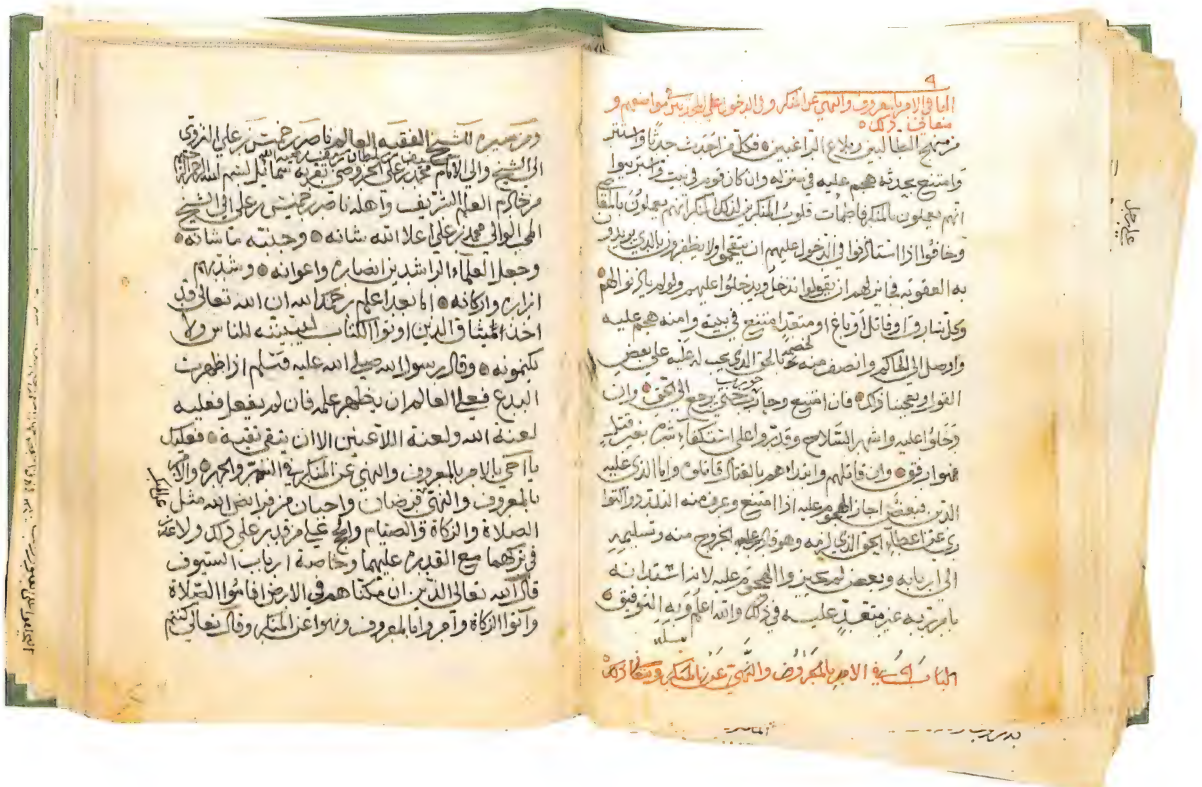 ٩
الباب في الامر بالمعروف والنهي عن المنكر وفي الدخول على المحدثين مواضعهم و
معاني ذلك
من منهج الطالبين وبلاغ الراغبين فكل من احدث حدثا واستتر
وامتنع بحدثه هجم عليه في منزله وان كان قوم في بيت واسترابوا
انهم يعملون بالمنكر فاطمأنت قلوب المنكرين لذلك المنكر انهم يعملون
وخافوا اذا استأذنوا في الدخول عليهم ان ولا يظفرون بالذي يريدو
به العقوبة في لهم ان يقولوا ندخل ويدخلوا عليهم ولو لم يأذنوا لهم
او قاتل او باغ او متعد امتنع في بيته وامنه هجم عليه
واوصل الى الحاكم وانصف منه خصمه بالحق الذي يجب له عليه على بعض
القول ويعجبنا ذلك فان امتنع وحارب حورب حتى يرجع الى الحق وان
دخلوا عليه واشهر السلاح وقدروا على استكفاء شره بغير قتل
فهو ارفق وان قاتلهم وابتداهم بالقتال قاتلوه واما الذي عليه
الدين فبعض اجاز الهجوم عليه اذا امتنع وعرف منه التلدد والتوا
رى عن اعطاء الحق الذي لزمه وهو قادر على الخروج منه وتسليمه
الى اربابه وبعض لم يجيز الهجوم عليه لانه استدانه
بامر ربه غير متعد عليه في ذلك والله اعلم وبه التوفيق
مسئلة
الباب في الامر بالمعروف والنهي عن المنكر ومعاني ذلك
ومن سيرة للشيخ الفقيه العالم ناصر بن خميس بن علي النزوي
الى الشيخ والي الامام محمد بن علي
من خادم العلم الشريف واهله ناصر بن خميس بن علي الى الشيخ
المحب الوالي محمد بن علي اعلا الله شانه وجنبه ما شانه
وجعل العلماء الراشدين انصاره واعوانه وشد بهم
ازاره واركانه اما بعد اعلم رحمك الله ان الله تعالى قد
اخذ الميثاق الذين اوتوا الكتاب لتبيننه للناس ولا
تكتمونه وقال رسول الله صلى الله عليه وسلم اذا ظهرت
البدع فعلى العالم ان يظهر علمه فان لم يفعل فعليه
لعنة الله ولعنة اللاعنين الا ان يتقي تقية فعليك
يا اخي بالامر بالمعروف والنهي عن المنكر في السر والجهر والامر
بالمعروف والنهي فرضان واجبان من فرائض الله مثل
عن المنكر
الصلاة والزكاة والصيام والحج على من قدر على ذلك ولا عذر
في تركهما مع القدرة عليهما وخاصة ارباب السيوف
قال الله تعالى الذين ان مكناهم في الارض اقاموا الصلاة
وآتوا الزكاة وامروا بالمعروف ونهوا عن المنكر وقال تعالى كنتم